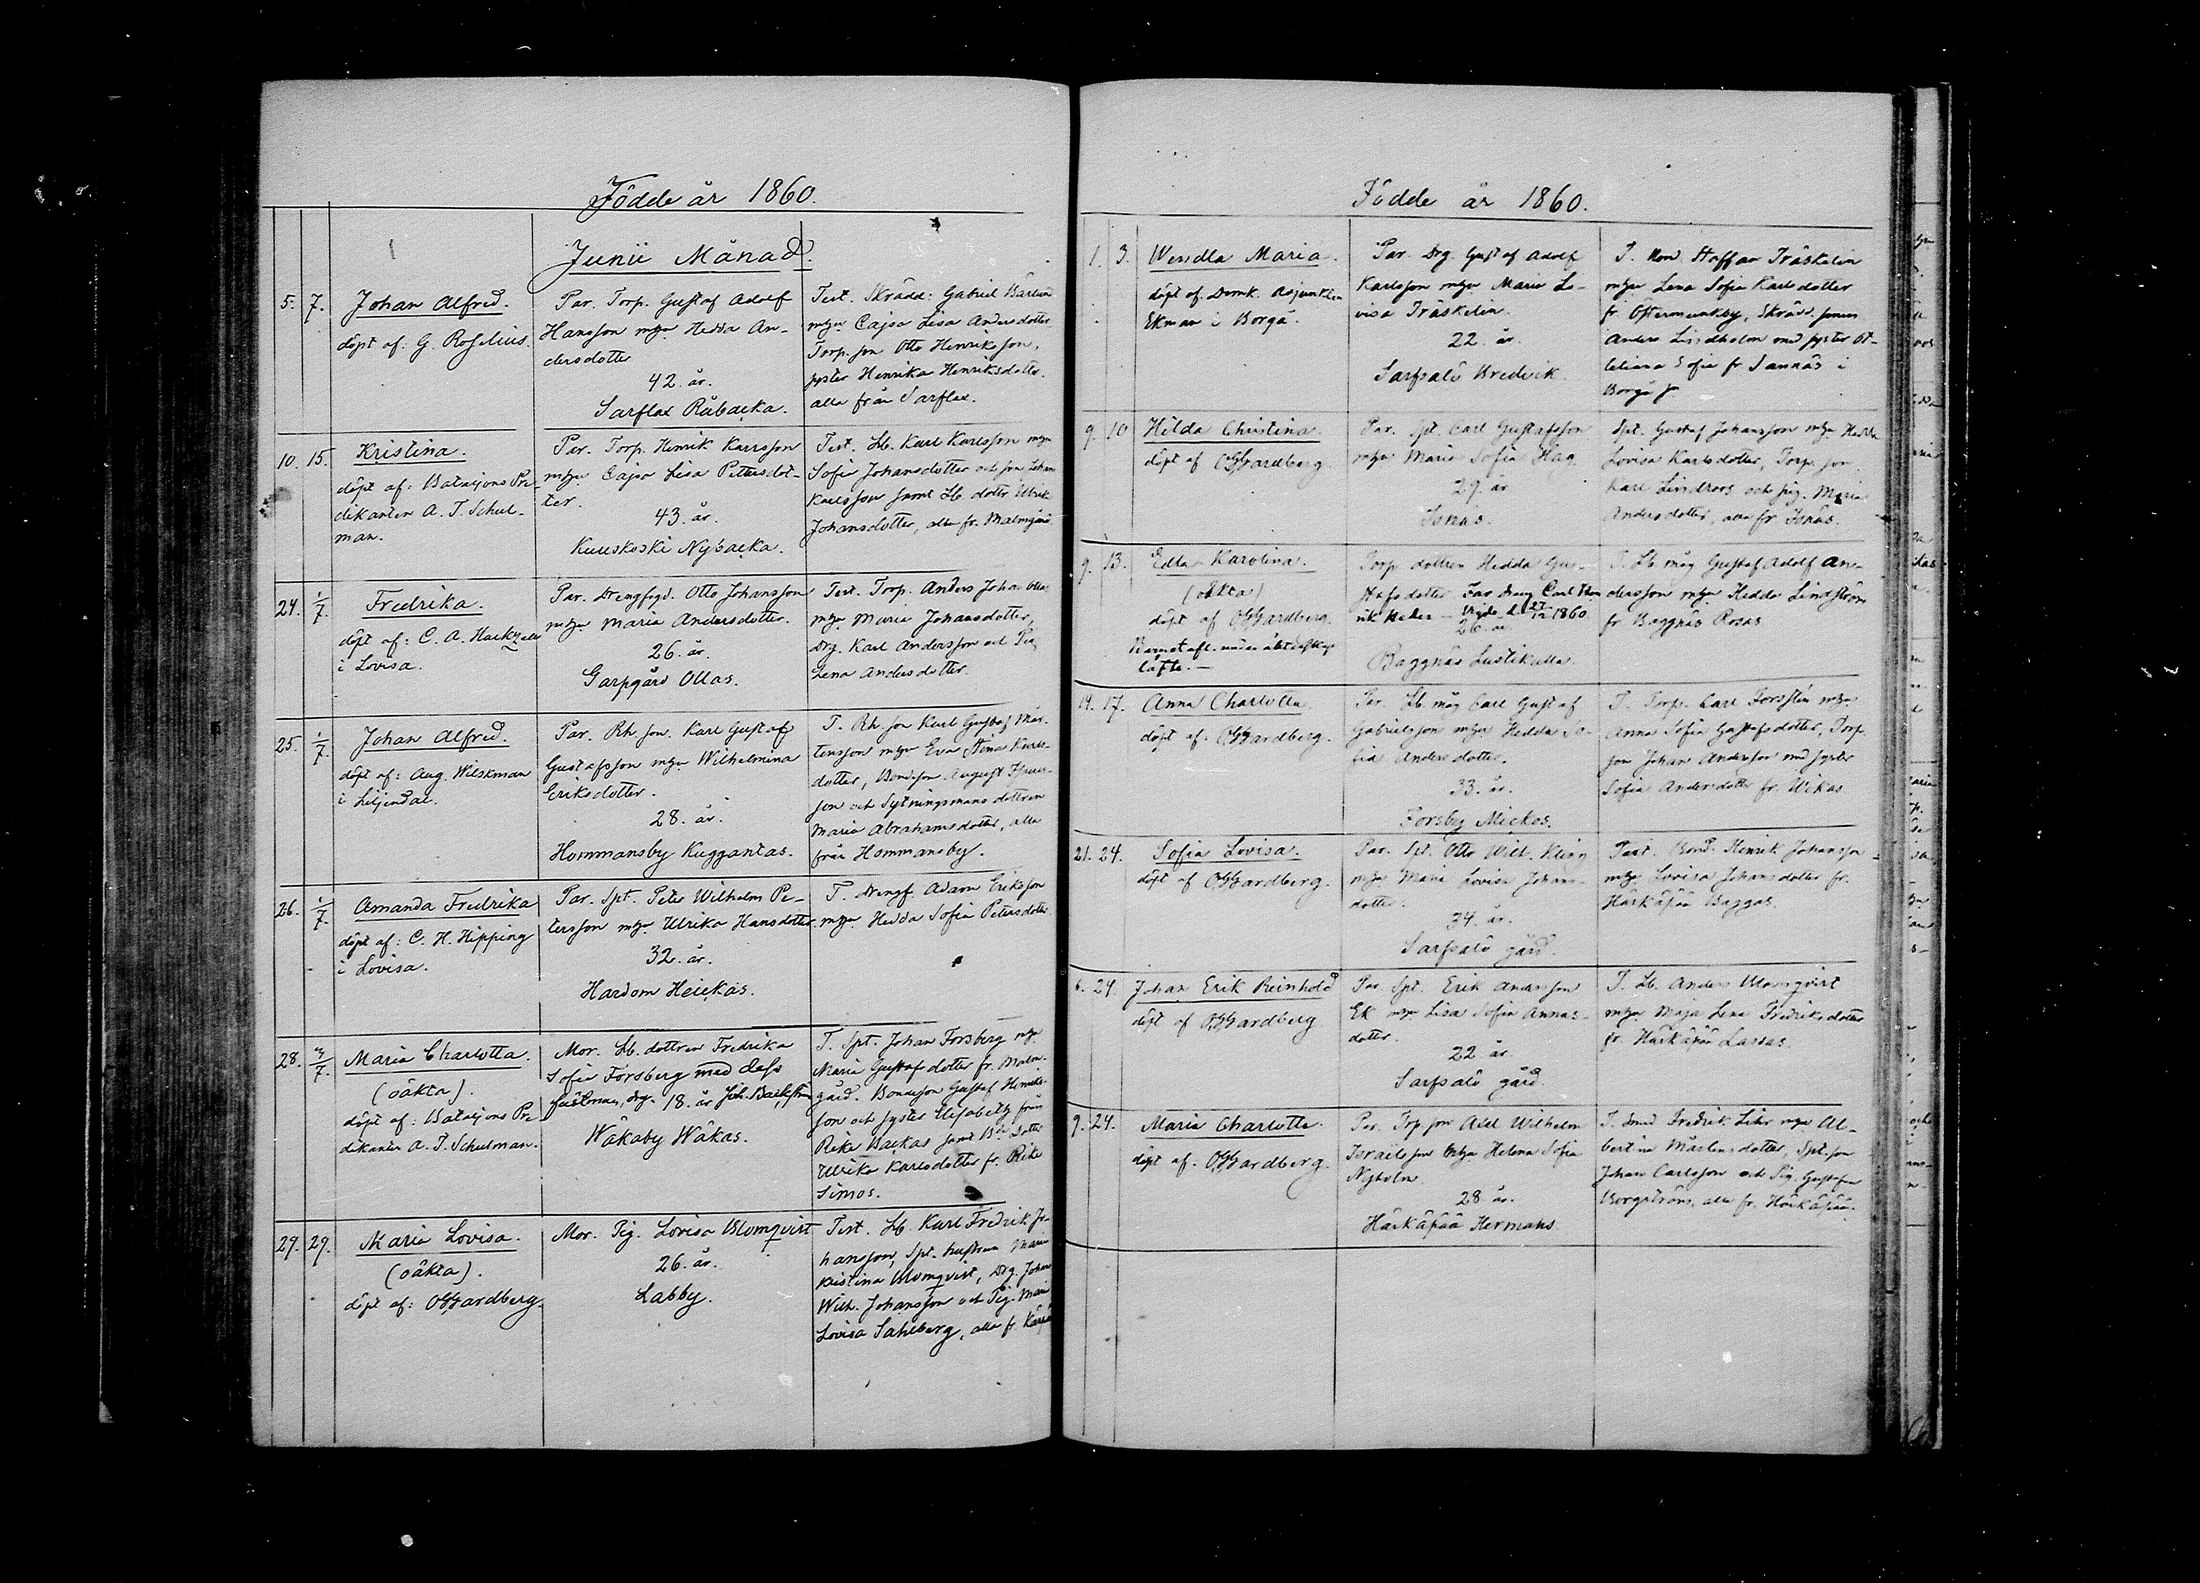 Födde år 1860.
Junii Månad.
5. 7. Johan Alfred.
döpt af: G. Roselius.
Par. Torp. Gustaf Adolf
Hansson m/hu Hedda An-
dersdotter
42. år.
Sarflax Råbacka.
Test. Skrädd: Gabriel Bärlund
m/hu Cajsa Lisa Andersdotter
Torp. son Otto Henriksson,
syster Henrika Henriksdotter.
alla från Sarflax.
10. 15. Kristina.
döpt af: Bataljons Pre-
dikanten A. T. Schul-
man.
Par. Torp. Henrik Karlsson
m/hu Cajsa Lisa Pettersdot-
ter.
43. år.
Kuuskoski Nybacka.
Test. Lb. Karl Karlsson m/hu
Sofia Johansdotter och son Johan
Karlsson samt Lb. dotter Ulrik
Johansdotter, alla fr. Malmgård.
24. 1/7. Fredrika.
döpt af: C. A. Hacksell
i Lovisa.
Par. Drengfogd. Otto Johansson
m/hu Maria Andersdotter.
26. år.
Garpgård Ollas.
Test. Torp. Anders Johan
m/hu Maria Johansdotter,
Drg. Karl Andersson och Pig
Lena Andersdotter.
25. 1/7. Johan Alfred.
döpt af: Aug. Wilskman
i Liljendal.
Par. Rh. son. Karl Gustaf
Gustafsson m/hu Wilhelmina
Eriksdotter.
28. år.
Hommansby Kuggantas.
T. Rh. son Karl Gustaf Mår-
tensson m/hu Eva Stina Karls-
dotter, Bondeson August
son och Sytningsmans dottren
Maria Abrahamsdotter, alla
från Hommansby.
26. 1/7. Amanda Fredrika
döpt af: C. H. Hipping
i Lovisa.
Par. Spt. Peter Wilhelm Pe-
tersson m/hu Ulrika Hansdotter
32. år.
Hardom Heickas.
T. Drengf. Adam Eriksson
m/hu Hedda Sofia Petersdotter
28. 3/7. Maria Charlotta.
(oäkta).
döpt af: Bataljons Pre-
dikanten A. T. Schulman.
Mor. Lb. dottren Fredrika
Sofia Forsberg med dess
fästman, drg. 18. år Joh. Backström
Wåkaby Wåkas.
T. Spt. Johan Forsberg m/hu
Maria Gustafsdotter fr. Malm-
gård. Bondeson Gustaf Henriks-
son och syster Elisabeth från
Rike Backas samt Bde dotter
Ulrika Karlsdotter fr. Rike
Simos.
29. 29. Maria Lovisa.
(oäkta).
döpt af: O. Gardberg.
Mor. Pig. Lovisa Blomqvist
26. år.
Labby.
Test. Lb. Karl Fredrik Jo-
hansson, Spt. hustrun Maria
Kristina Blomqvist, Drg. Johan
Wilh. Johansson och Pig. Maria
Lovisa Sahlberg, alla fr.
Födde år 1860.
1. 3. Wendla Maria.
döpt af. Domk. Adjunkten
Ekman i Borgå.
Par. Drg. Gustaf Adolf
Karlsson m/hu Maria Lo-
visa Träskelin.
22. år.
Sarfsalö Bredvik.
T. Bond. Staffan Träskelin
m/hu Lena Sofia Karlsdotter
fr. Östermunkby, Skrädd. sonen
Anders Lindholm med syster Ot-
teliana Sofia fr. Sannäs i
Borgå
9. 10 Hilda Christina.
döpt af O. Gardberg.
Par. Spt. Carl Gustafsson
m/hu Maria Sofia Hag.
29. år
Isnäs.
Spt. Gustaf Johansson m/hu Hedda
Lovisa Karlsdotter, Torp. son
Karl Lindroos och Pig. Maria
Andersdotter, alla fr. Isnäs.
9. 13. Edla Karolina.
(oäkta)
döpt af O. Gardberg.
Barnet afl. under äktenskaps
löfte. —
Torp. dottren Hedda Gu-
stafsdotter Far dreng Carl
26. år. 1860
Baggnäs Lustikulla.
T. Lb. måg Gustaf Adolf An-
dersson m/hu Hedda Lindström
fr. Baggnäs Rosas.
14. 17. Anna Charlotta.
döpt af: O. Gardberg.
Par. Lb. måg Carl Gustaf
Gabrielsson m/hu Hedda So-
fia Andersdotter.
33. år.
Forsby Mickos.
T. Torp. Carl Forsstén m/hu
Anna Sofia Gustafsdotter, Torp.
son Johan Andersson med syster
Sofia Andersdotter fr. Wikas
21. 24. Sofia Lovisa.
döpt af O. Gardberg.
Par. Spt. Otto Wilh. Kling
m/hu Maria Lovisa Johans-
dotter.
34. år.
Sarfsalö gård.
Test. Bond. Henrik Johansson
m/hu Lovisa Johansdotter fr.
Härkäpää Baggas.
6. 24. Johan Erik Reinhold
döpt af O. Gardberg
Par. Spt. Erik Andersson
Ek m/hu Lisa Sofia Annas-
dotter.
22 år.
Sarfsalö gård.
T. Lb. Anders Blomqvist
m/hu Maja Lena Fredriksdotter
fr. Härkäpää Lassas.
9. 24. Maria Charlotta.
döpt af. O. Gardberg.
Par. Torp. son Axel Wilhelm
Israelsson m/hu Helena Sofia
Nyholm
28 år.
Härkäpää Hermans
T. Smed Fredrik Lihr m/hu Al-
bertina Mårtensdotter, Spt. son
Johan Carlsson och Pig. Gustafva
Borgström, alla fr. Härkäpää.